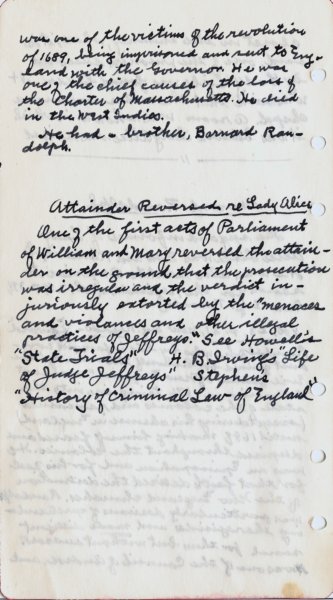 was one of the victims of the revolution
of 1689, being imprisoned and sent to Eng-
land with the Governor. He was
one of the chief causes of the loss of
the Charter of Massachusetts. He died
in the West Indies.
He had a brother, Barnard Ran-
dolph.
Attainder Reversed re Lady Alice
One of the first acts of Parliament
of William and Mary reversed the attain-
der on the ground that the prosecution
was irregular and the verdict in-
juriously extorted by the "menaces
and violances and other illegal
practices of Jeffreys." See Howell's
"State Trials" H. B. Irving's Life
of Judge Jeffreys" Stephens
"History of Criminal Law of England"